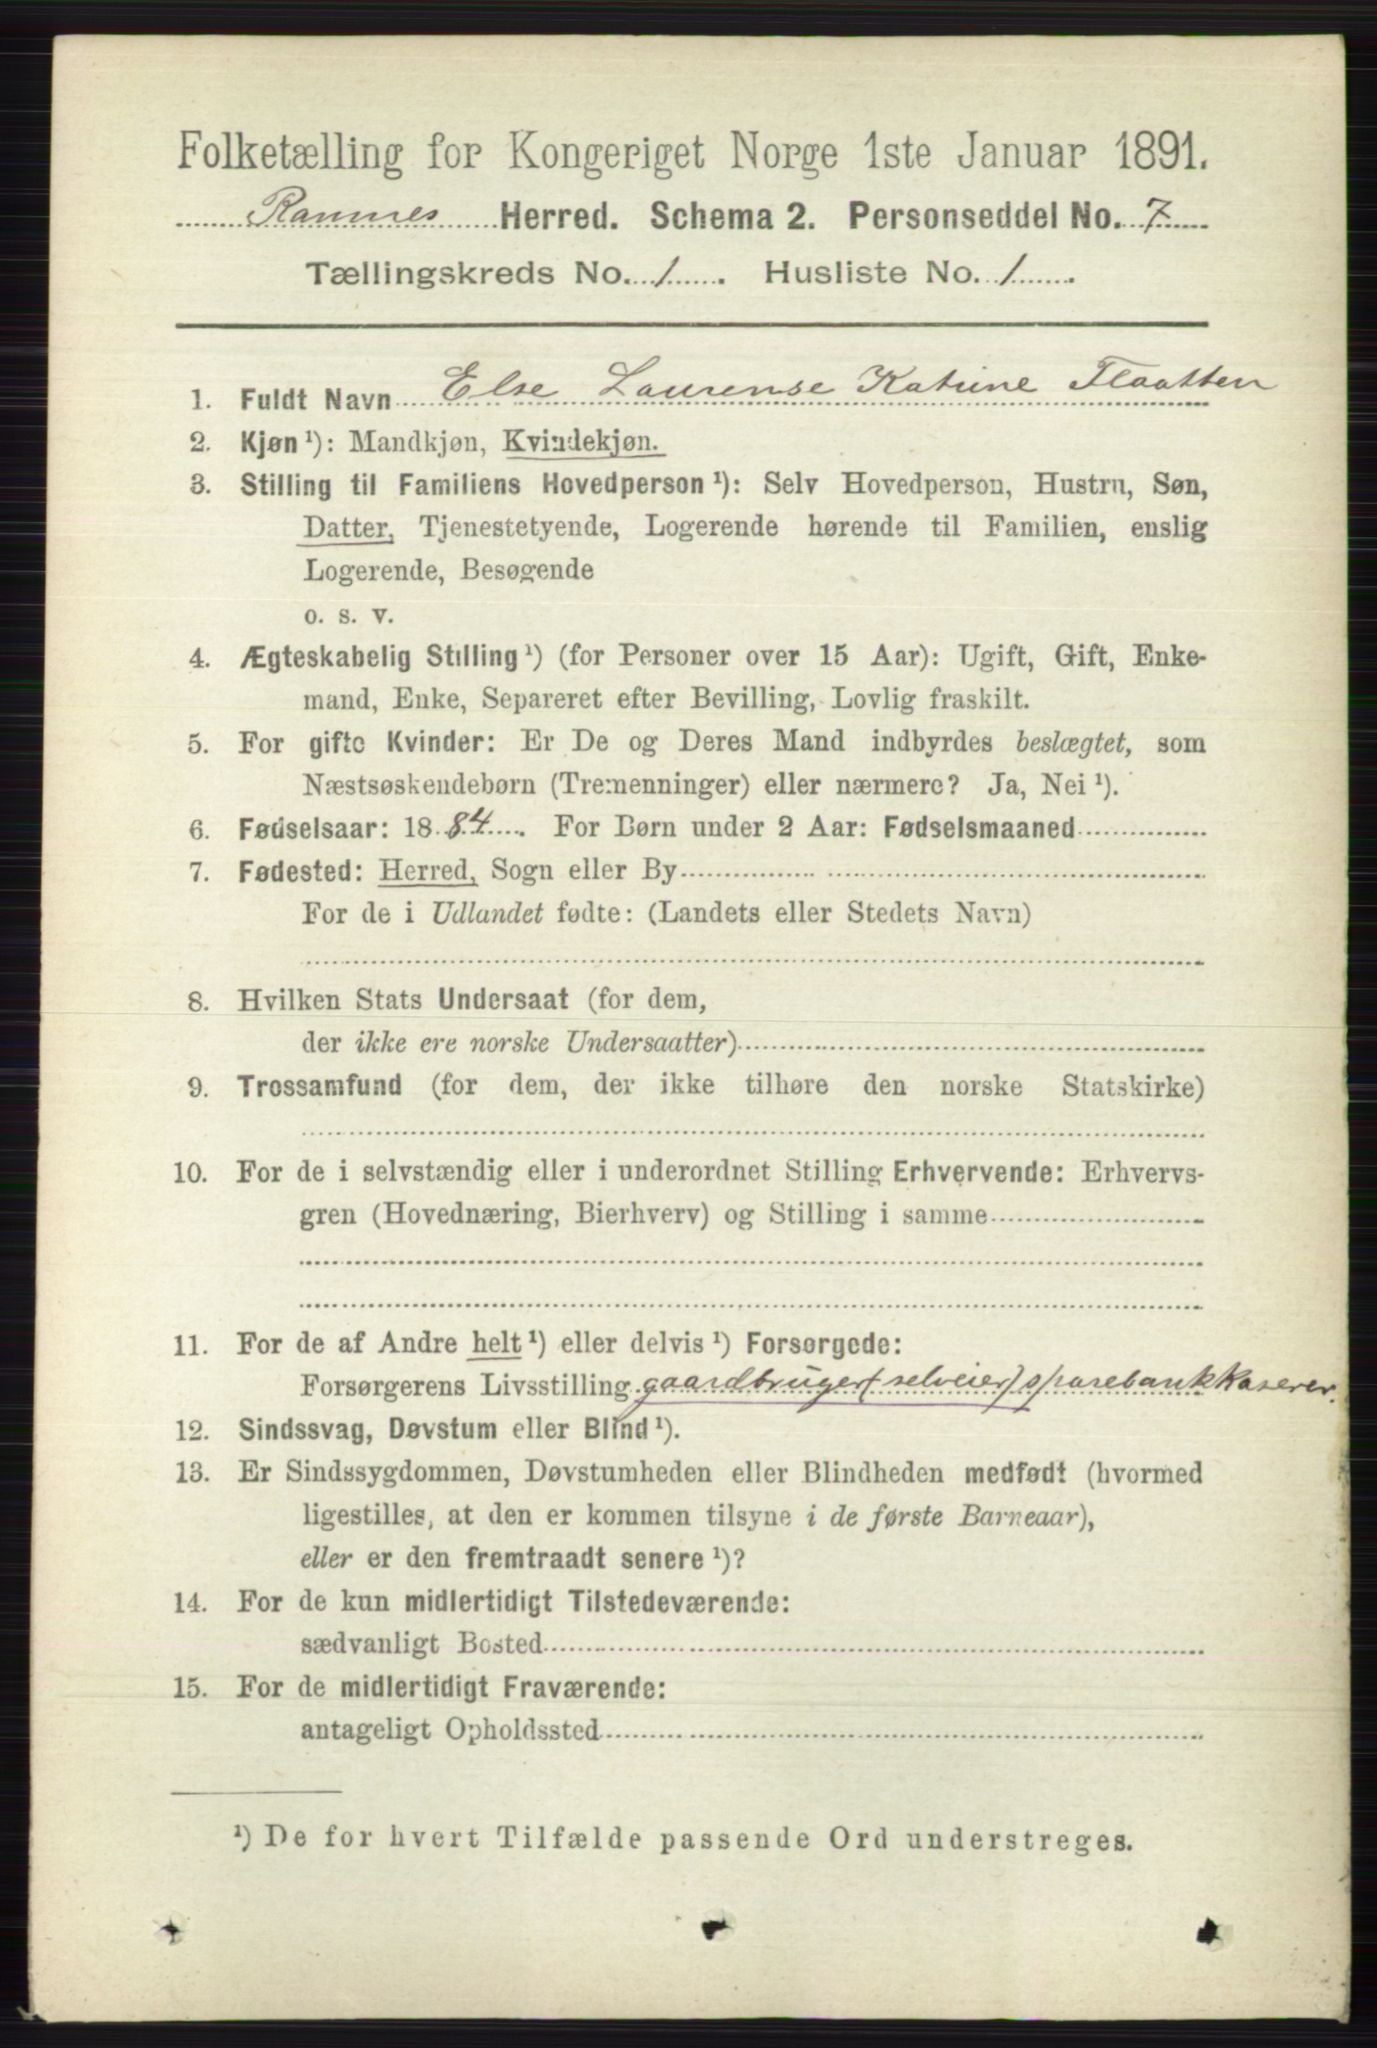 Folketælling for Kongeriget Norge 1ste Januar 1891.
Ramnes Herred. Schema 2. Personseddel No. 7
Tællingskreds No. 1. Husliste No. 1.
1. Fuldt Navn Else Laurense Katrine Flaatten
2. Kjøn¹): Mandkjøn, Kvindekjøn.
3. Stilling til Familiens Hovedperson¹): Selv Hovedperson, Hustru, Søn,
Datter, Tjenestetyende, Logerende hørende til Familien, enslig
Logerende, Besøgende
o. s. v.
4. Ægteskabelig Stilling¹) (for Personer over 15 Aar): Ugift, Gift, Enke-
mand, Enke, Separeret efter Bevilling, Lovlig fraskilt.
5. For gifte Kvinder: Er De og Deres Mand indbyrdes beslægtet, som
Næstsøskendebørn (Tremenninger) eller nærmere? Ja, Nei¹).
6. Fødselsaar: 1884. For Børn under 2 Aar: Fødselsmaaned
7. Fødested: Herred, Sogn eller By
For de i Udlandet fødte: (Landets eller Stedets Navn)
8. Hvilken Stats Undersaat (for dem,
der ikke ere norske Undersaatter)
9. Trossamfund (for dem, der ikke tilhøre den norske Statskirke)
10. For de i selvstændig eller i underordnet Stilling Erhvervende: Erhvervs-
gren (Hovednæring, Bierhverv) og Stilling i samme
11. For de af Andre helt¹) eller delvis¹) Forsørgede:
Forsørgerens Livsstilling gaardbruger (selveier) sparebankkaserer.
12. Sindssvag, Døvstum eller Blind¹).
13. Er Sindssygdommen, Døvstumheden eller Blindheden medfødt (hvormed
ligestilles, at den er kommen tilsyne i de første Barneaar),
eller er den fremtraadt senere¹)?
14. For de kun midlertidigt Tilstedeværende:
sædvanligt Bosted
15. For de midlertidigt Fraværende:
antageligt Opholdssted
¹) De for hvert Tilfælde passende Ord understreges.